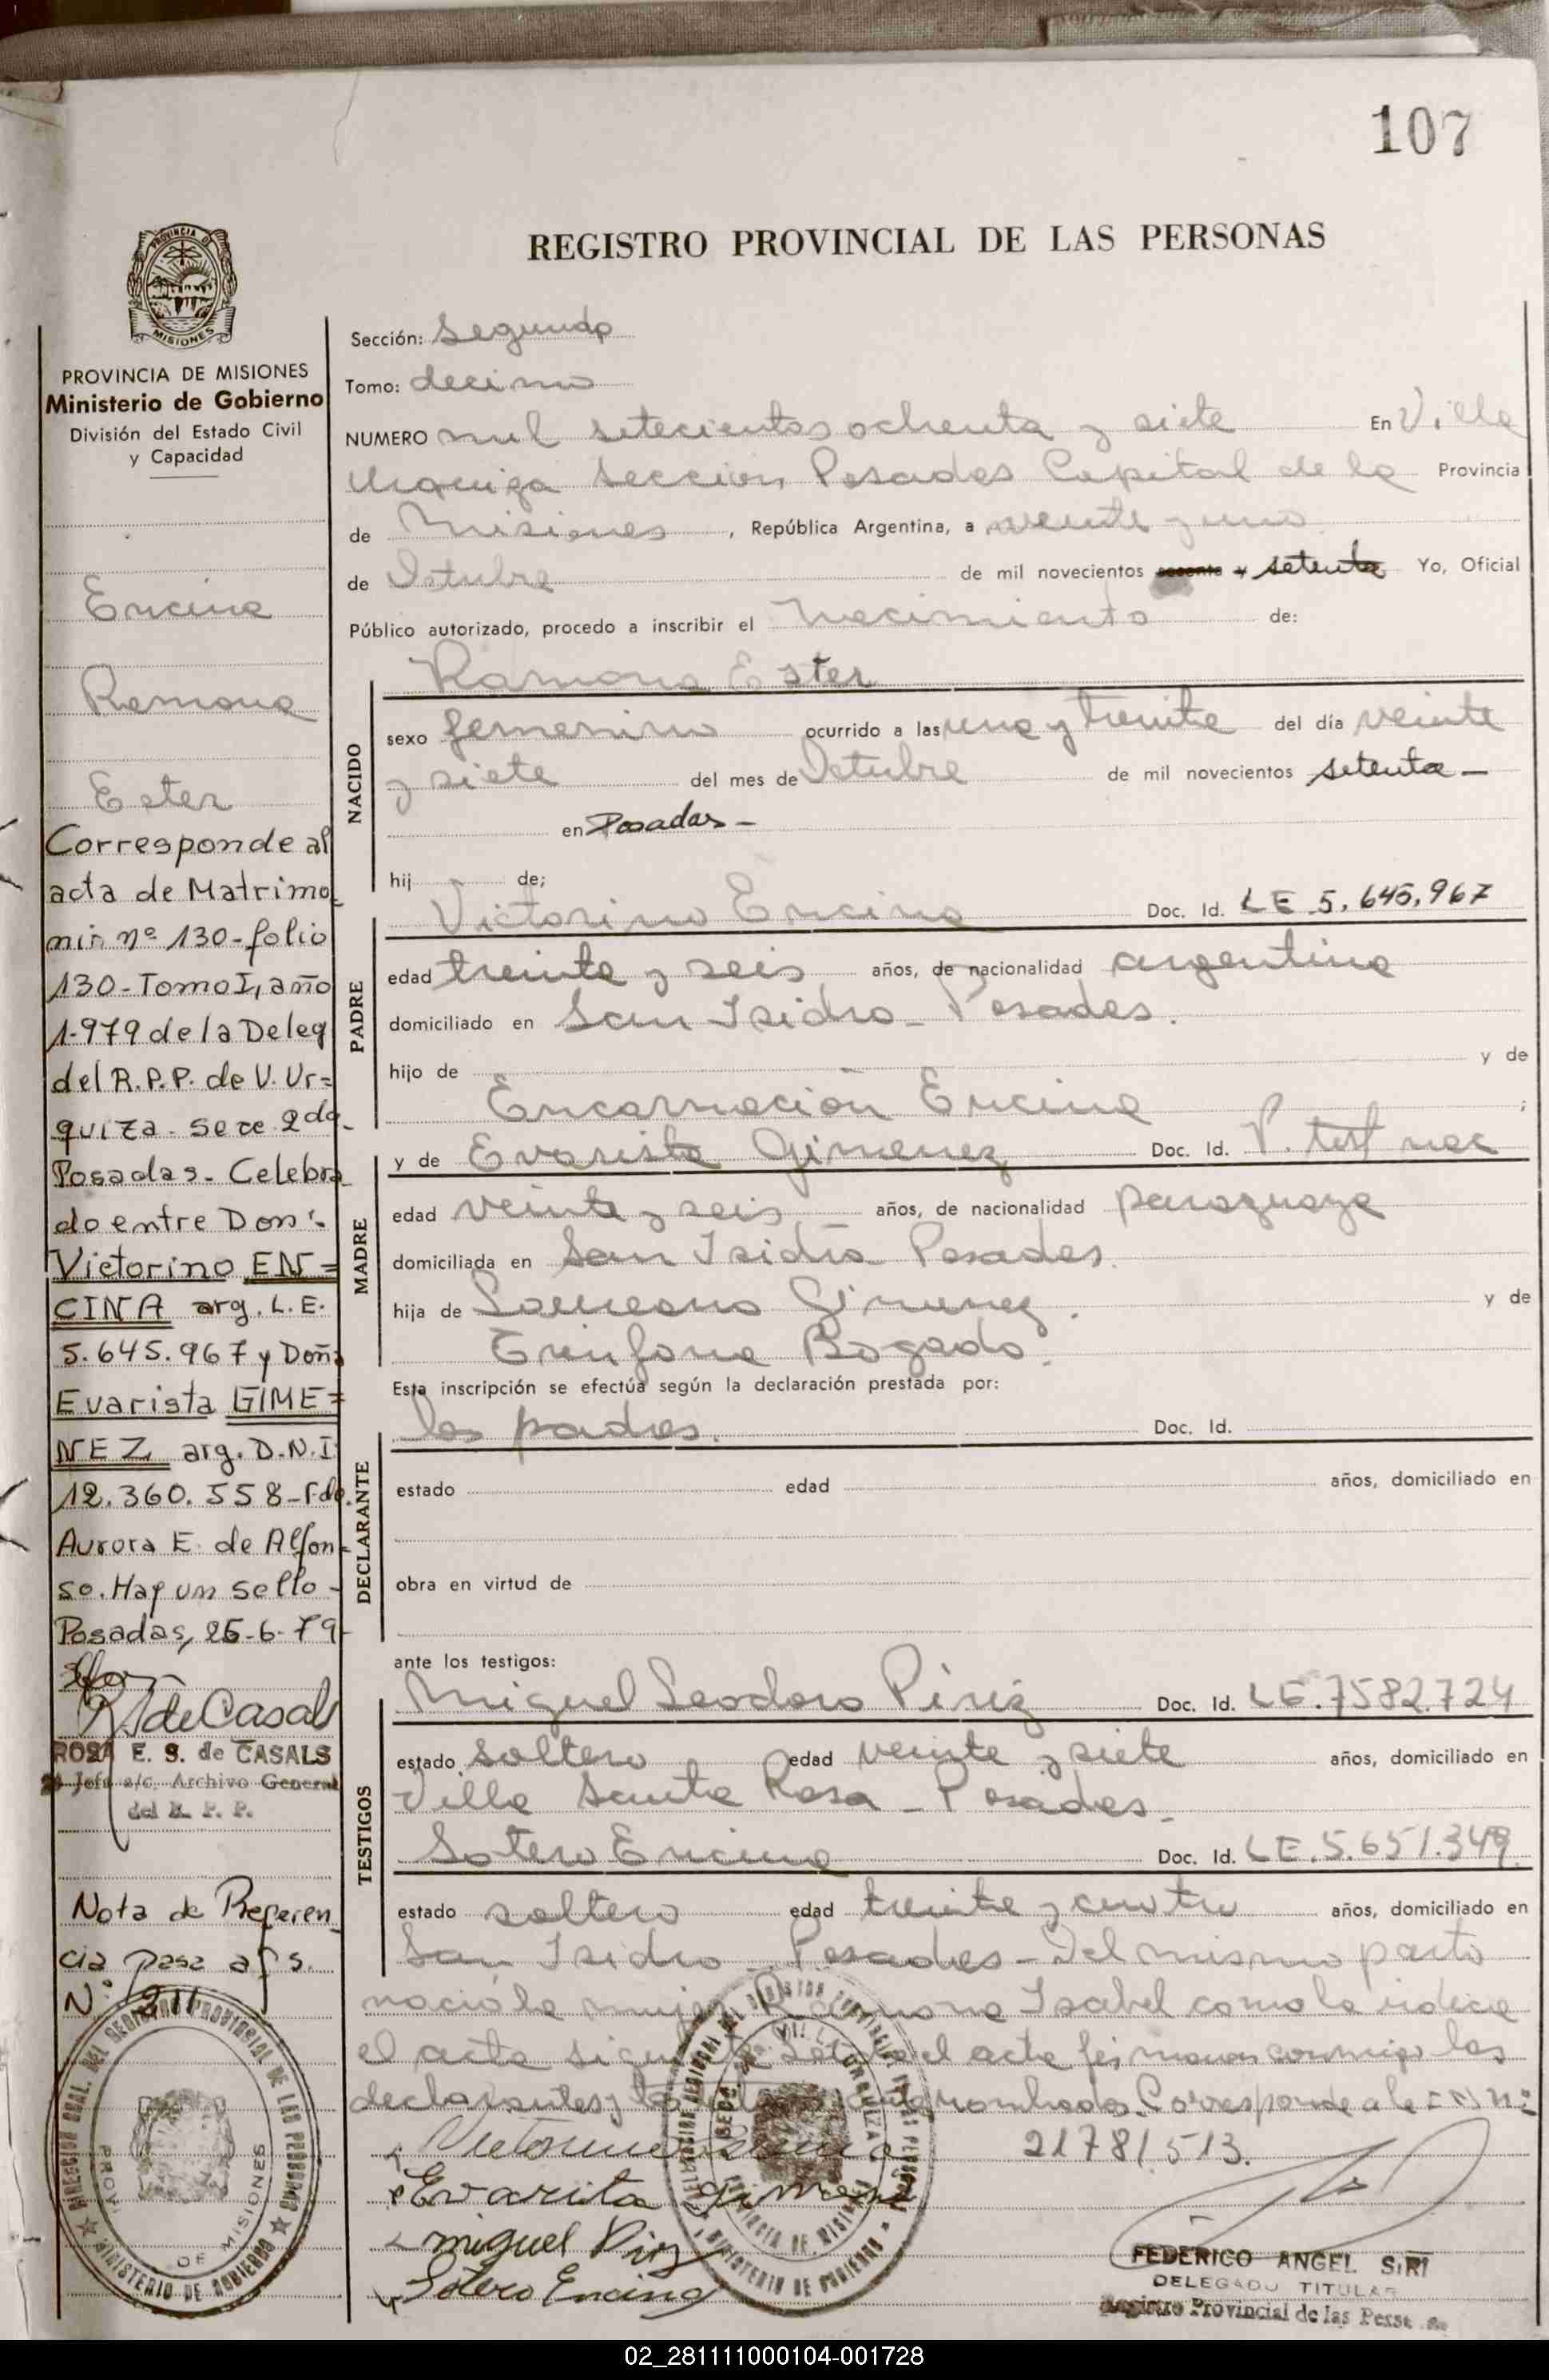 107
REGISTRO PROVINCIAL DE LAS PERSONAS
PROVINCIA DE MISIONES
Ministerio de Gobierno
División del Estado Civil
y Capacidad
Encina
Ramona
Ester
Corresponde al
acta de Matrimo
nio nº 130-folio
130-Tomo I, año
1.979 de la Deleg
del R.P.P. de V. Ur=
quiza. Secc 2da.
Posadas. Celebra
do entre Don:
Victorino EN=
CINA arg. L.E.
5.645.967 y Doña
Evarista GIME=
NEZ arg. D.N.I.
12.360.558-Fdo.
Aurora E. de Alfon-
so. Hay un sello-
Posadas, 26-6-79-
R. de Casals
ROSA E. S. de CASALS
Jefe a/c. Archivo General
del R. P. P.
Nota de Referen
cia pasa a fs.
Nº 211
DIRECCION GRAL. DEL REGISTRO PROVINCIAL DE LAS PERSONAS
MINISTERIO DE GOBIERNO
PROV. DE MISIONES
Sección: Segunda
Tomo: decimo
NUMERO mil setecientos ochenta y siete En Villa
Urquiza Seccion Posadas Capital de la Provincia
de Misiones, República Argentina, a veinte y uno
de Octubre de mil novecientos sesenta y setenta Yo, Oficial
Público autorizado, procedo a inscribir el nacimiento de:
Ramona Ester
NACIDO
sexo femenino ocurrido a las una y treinta del día veinte
y siete del mes de Octubre de mil novecientos setenta-
en Posadas-
hij de;
Victorino Encina Doc. Id. LE 5.645.967
PADRE
edad treinta y seis años, de nacionalidad argentina
domiciliado en San Isidro - Posadas.
hijo de y de
Encarnación Encina ;
y de Evarista Gimenez Doc. Id. P. test nac
MADRE
edad veinte y seis años, de nacionalidad paraguaya
domiciliada en San Isidro Posadas.
hija de Gimenez. y de
Bogado.
Esta inscripción se efectúa según la declaración prestada por:
los padres. Doc. Id.
DECLARANTE
estado edad años, domiciliado en
obra en virtud de
ante los testigos:
Miguel Leodoro Piriz Doc. Id. LE.7582.724
TESTIGOS
estado soltero edad veinte y siete años, domiciliado en
Villa Santa Rosa - Posadas-
Sotero Encina Doc. Id. LE.5.651.349
estado soltero edad treinta y cuatro años, domiciliado en
San Isidro - Posadas - Del mismo parto
nació la mujer Ramona Isabel como lo indica
el acta el acta firmaron conmigo los
declarantes y nombrados. Corresponde a la n:
21781513.
Victorino Encina
Evarita Gimenez
Miguel Piriz
Sotero Encina
FEDERICO ANGEL SIRI
DELEGADO TITULAR
Registro Provincial de las Perso
02_281111000104-001728